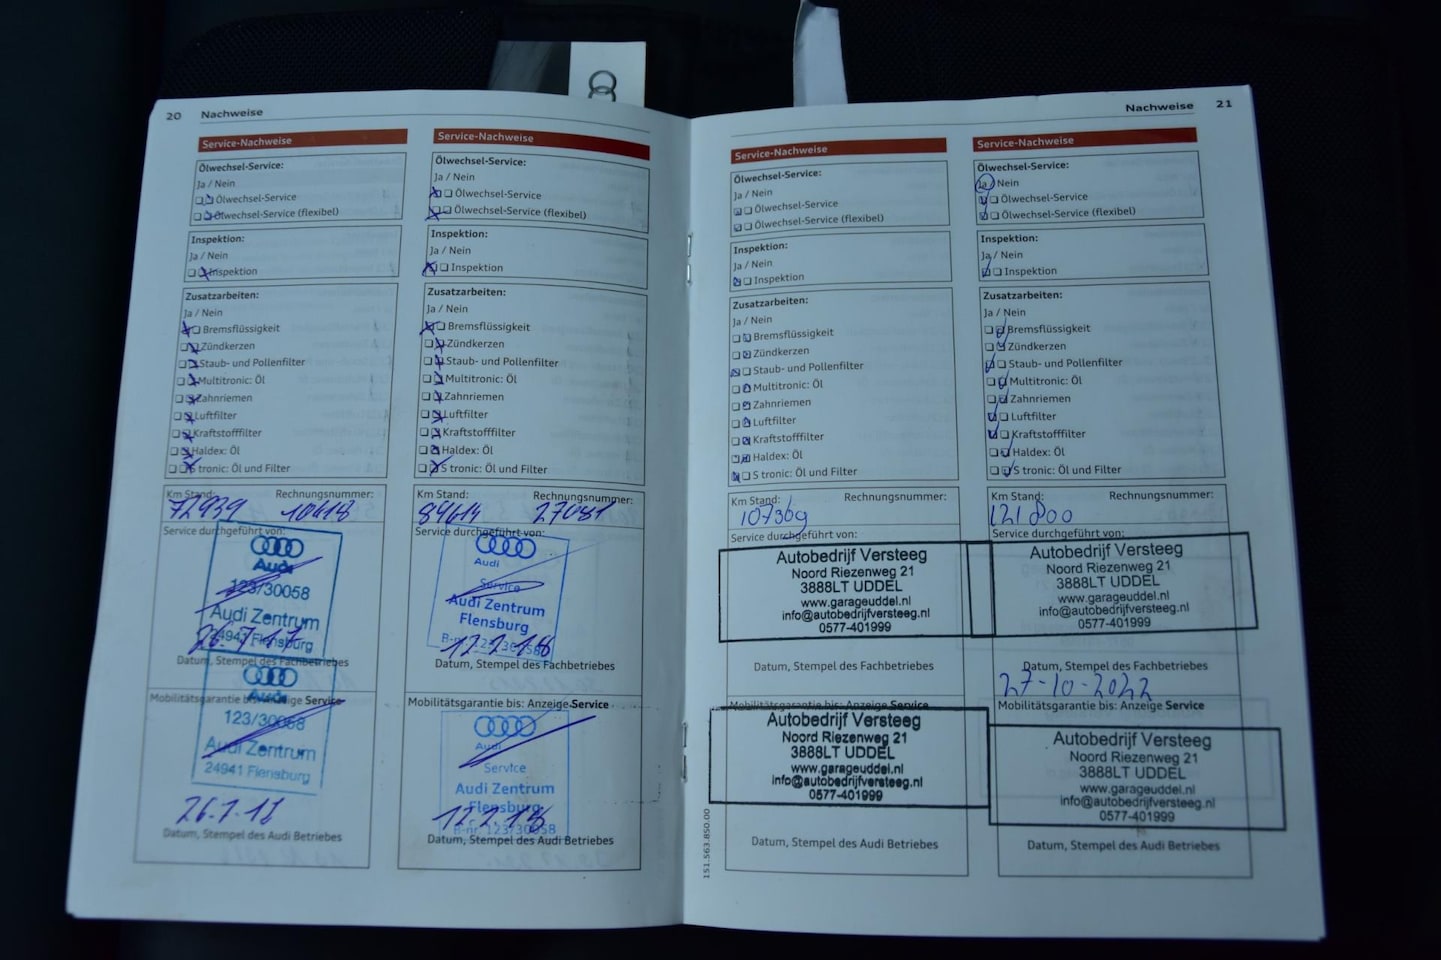 20 Nachweise
Service-Nachweise
Ölwechsel-Service:
Ja / Nein
Ölwechsel-Service
Ölwechsel-Service (flexibel)
Inspektion:
Ja / Nein
Inspektion
Zusatzarbeiten:
Ja / Nein
Bremsflüssigkeit
Zündkerzen
Staub- und Pollenfilter
Multitronic: Öl
Zahnriemen
Luftfilter
Kraftstofffilter
Haldex: Öl
S tronic: Öl und Filter
Km Stand: Rechnungsnummer:
72939
Service durchgeführt von:
Audi
123/30058
Audi Zentrum
24941 Flensburg
26.7.17
Datum, Stempel des Fachbetriebes
Mobilitätsgarantie bis: Anzeige Service
Audi
123/30058
Audi Zentrum
24941 Flensburg
Datum, Stempel des Audi Betriebes
Service-Nachweise
Ölwechsel-Service:
Ja / Nein
Ölwechsel-Service
Ölwechsel-Service (flexibel)
Inspektion:
Ja / Nein
Inspektion
Zusatzarbeiten:
Ja / Nein
Bremsflüssigkeit
Zündkerzen
Staub- und Pollenfilter
Multitronic: Öl
Zahnriemen
Luftfilter
Kraftstofffilter
Haldex: Öl
S tronic: Öl und Filter
Km Stand: Rechnungsnummer:
84614 27081
Service durchgeführt von:
Audi
Service
Audi Zentrum
Flensburg
B-nr. 123/30058
12.2.18
Datum, Stempel des Fachbetriebes
Mobilitätsgarantie bis: Anzeige Service
Audi
Service
Audi Zentrum
Flensburg
B-nr. 123/30058
12.2.18
Datum, Stempel des Audi Betriebes
Nachweise 21
Service-Nachweise
Ölwechsel-Service:
Ja / Nein
Ölwechsel-Service
Ölwechsel-Service (flexibel)
Inspektion:
Ja / Nein
Inspektion
Zusatzarbeiten:
Ja / Nein
Bremsflüssigkeit
Zündkerzen
Staub- und Pollenfilter
Multitronic: Öl
Zahnriemen
Luftfilter
Kraftstofffilter
Haldex: Öl
S tronic: Öl und Filter
Km Stand: Rechnungsnummer:
107369
Service durchgeführt von:
Autobedrijf Versteeg
Noord Riezenweg 21
3888LT UDDEL
www.garageuddel.nl
info@autobedrijfversteeg.nl
0577-401999
Datum, Stempel des Fachbetriebes
Mobilitätsgarantie bis: Anzeige Service
Autobedrijf Versteeg
Noord Riezenweg 21
3888LT UDDEL
www.garageuddel.nl
info@autobedrijfversteeg.nl
0577-401999
Datum, Stempel des Audi Betriebes
151.563.850.00
Service-Nachweise
Ölwechsel-Service:
Ja / Nein
Ölwechsel-Service
Ölwechsel-Service (flexibel)
Inspektion:
Ja / Nein
Inspektion
Zusatzarbeiten:
Ja / Nein
Bremsflüssigkeit
Zündkerzen
Staub- und Pollenfilter
Multitronic: Öl
Zahnriemen
Luftfilter
Kraftstofffilter
Haldex: Öl
S tronic: Öl und Filter
Km Stand: Rechnungsnummer:
121800
Service durchgeführt von:
Autobedrijf Versteeg
Noord Riezenweg 21
3888LT UDDEL
www.garageuddel.nl
info@autobedrijfversteeg.nl
0577-401999
Datum, Stempel des Fachbetriebes
27-10-2022
Mobilitätsgarantie bis: Anzeige Service
Autobedrijf Versteeg
Noord Riezenweg 21
3888LT UDDEL
www.garageuddel.nl
info@autobedrijfversteeg.nl
0577-401999
Datum, Stempel des Audi Betriebes